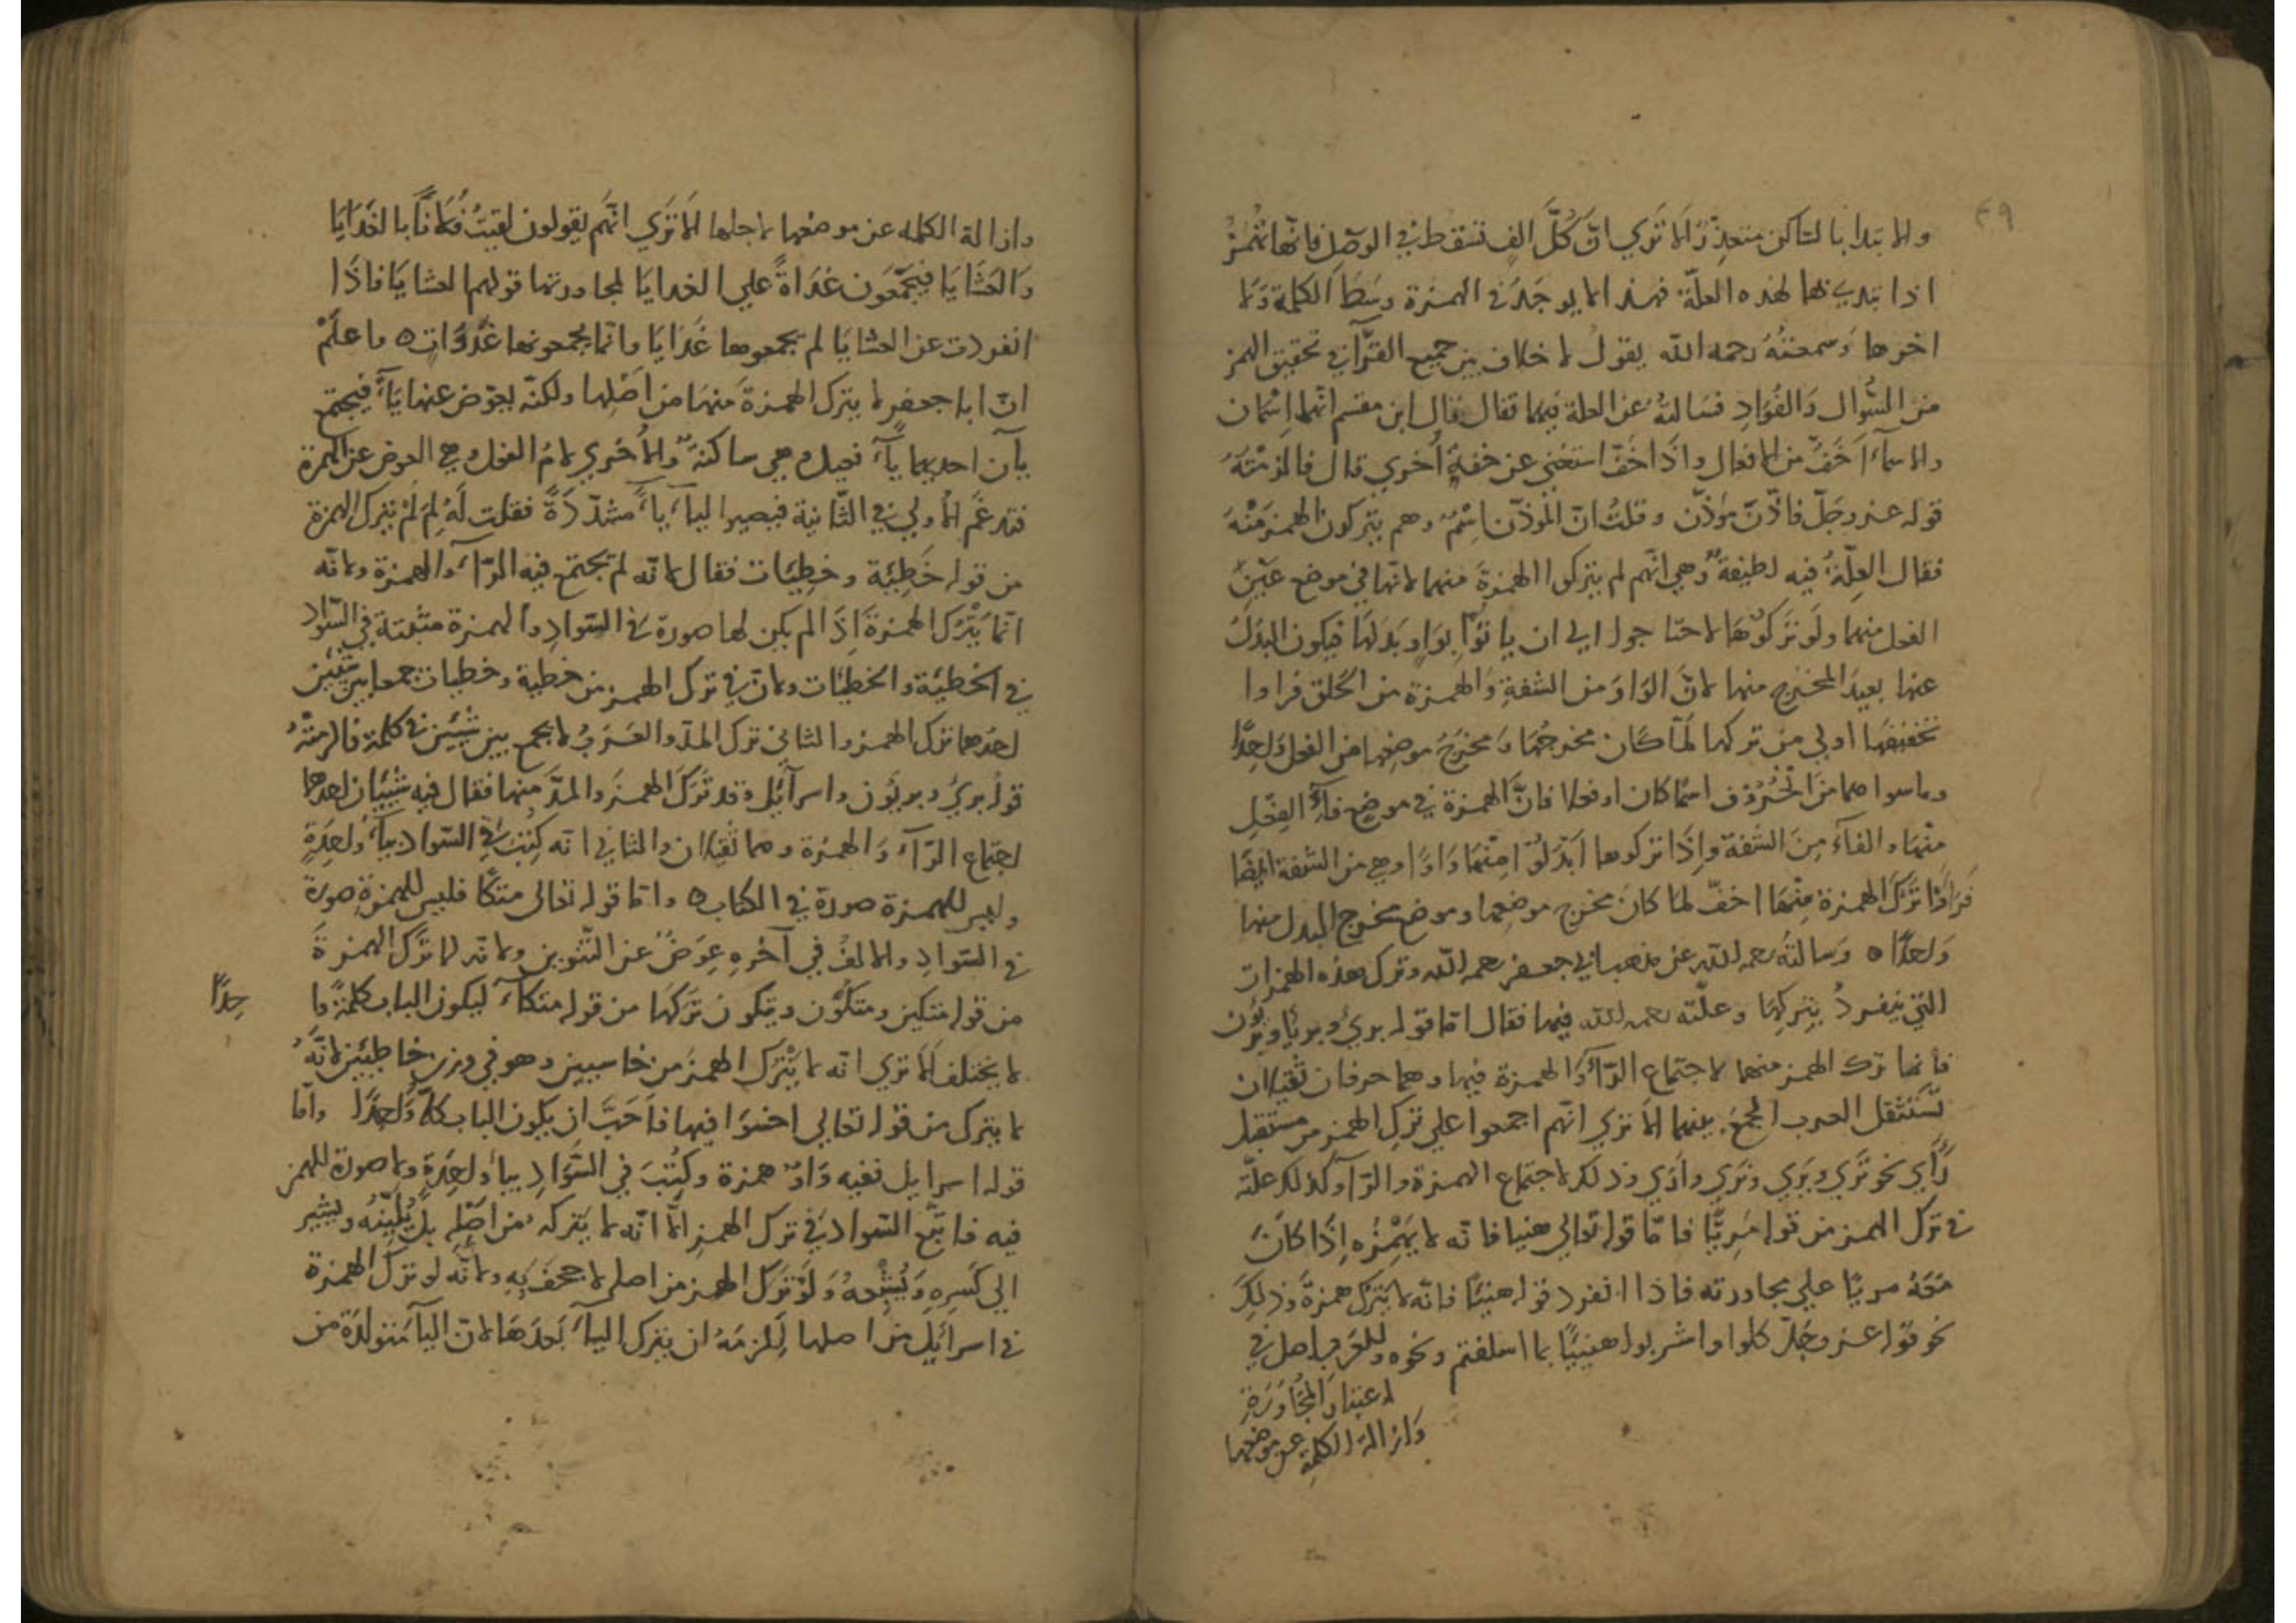 ٤٩
والابتدا بالساكن متعذّرٌ الا تَرَي انّ كُلَّ الفٍ تسقط في الوصل فانّها تُهمَزُ
اذا ابتدي بها لهذه العلّة فهذا لا يوجَدُ في الهمزة وسَطَ الكلمة ولا
اخرها وَسمعتُهُ رحمه الله يقول لا خلاف بين جميع القرّآ في تحقيق الهمز
من السُّوال وَالفُوَادِ فسَالتهُ عن العلة فيهما فقال قال ابن مقسم انّهما اسْمَان
والاسمآء اَخَفُّ من الافعال واذَا خَفّ استغنى عن خفةٍ اُخرَي قال فالزمْتُهُ
قوله عز وجَلّ فاذّن مُوَذّن وقلتُ انّ المُوذّن اِسْمٌ وهم يتركون الهمز مِنْهُ
فقال العِلّةُ فيه لطيفةٌ وهي انّهم لم يتركوا الهمزةَ منهما لانّها في موضع عَيْنِ
الفعل منهما ولَو تَرَكُوهَا لاحتاجوا الي ان ياتوا بوَاوٍ بَدَلَهَا فيكون البدَلُ
عنها بعيدَ المخرج منها لانّ الوَاوَ من الشفةِ وَالهمزة من الحَلق فراوا
تخفيفَهَا اولي من تركها لَمّا كان مخرجُهَا وَمخرَجُ موضِعِها من الفعل وَاحِدًا
وما سواهما مِنَ الحُرُوف اسمًا كان او فعلا فانَّ الهمزة في موضع فآءِ الفِعْلِ
مِنْهَا والفآء مِنَ الشفة وَاِذَا تركوها اَبْدَلُوْا مِنْهَا وَاوًا وهي من الشفة ايضًا
فَرَاَوْا تَرْكَ الهمزة مِنْهَا اخفّ لما كان مخرج موضعها وموضع مخرج البدل منها
وَاحدًا ه وَسَالتُهُ رحمه الله عن مذهب ابي جعفر رحمه الله وترك هذه الهمزات
التي ينفردُ بتركِهَا وعلّته رحمه الله فيها فقال امّا قوله بري وبريا وبريون
فانما ترك الهمز منهما لاجتماع الرّآ وَالهمزة فيها وهما حرفان ثقيلان
تَستثقل العرب الجمعَ بينهما الا تري انّهم اجمعوا علي تركِ الهمز من مستقبل
رَاَي نحو تَرَي ويَرَي ونَرَي واَرَي وذلك لاجتماع الهمزة والرّآ وكذلك علّته
في ترك الهمز من قوله مَرِيًّا فامّا قوله تعالي هنيا فانه لا يَهْمِزُه اِذَا كانَ
مَعَهُ مريّا علي مجاورته فاذا انفرد قوله هنيئًا فانّه لا يَترُك همزهُ وَذلِكَ
نحو قوله عز وجَلّ كلوا واشربوا هنيئًا بما اسلفتم ونحوه وللعَرَبِ اصل في
اعتبار المجَاوَرَةِ
وَازالة الكلمة عن موضعها
وازالة الكلمه عن موضعها لاجلها اَلا تَرَي انّهُم يقولون لقيتُ فُلانًا بالغَدَايَا
وَالعَشَايَا فيجمَعُون غدَاةً علي الغدايا لمجاورتها قولهم العشايَا فاذَا
انفردت عن العشايَا لم يجمعوها غَدَايَا وانّما يجمعونها غَدَوَات ه واعلَمْ
انّ ابا جعفرٍ لا يترك الهمزةَ منهَا من اَصْلِها ولكنّه يعوّض عنها يَآءً فيجتمع
يآان احديهما يَآءُ فعيل وهي ساكنة وَالاُخرَي لامُ الفعل وهي العوض عن الهمزة
فتدغَم الاُولي في الثّانية فيصير اليآء يآءً مشدّدَةً فقلت لَهُ لِمَ لَمْ يترك الهمزة
من قوله خَطِيْئَة وخطِيْئَات فقال لانّه لم يجتمع فيه الرّآء والهمزة ولانّه
انّما يَتْرُك الهمزةَ اِذَا لم يكن لها صورة في السّوادِ والهمزة مثبتة في السّواد
في الخطيئة والخطيئات ولانّ في ترك الهمز من خطية وخطيات جمعا بين شيئين
احدهما ترك الهمز والثاني ترك المدّ والعَرَبُ لا تجمع بين شيئين في كلمة فالزمتُهُ
قوله بريٌ وبريُون واسرآئيل وقد تَرَكَ الهمزَ والمدَّ منها فقال فيه شَيْئَان احدهما
اجتماع الرّآءِ وَالهمزة وهما ثقيلان والثاني انّه كُتِبَ في السّواد بيآءٍ وَاحِدَةٍ
وليس للهمزة صورة في الكتاب ه وامّا قوله تعالى متكئًا فليس للهمزةِ صورة
في السّوادِ والالفُ في آخره عِوَضٌ عن التّنوين ولانّه لمّا تَرَك الهمزةَ
من قوله متكين ومتكُوْن ويتكون تَرَكهَا من قوله متكآء ليكون الباب كلمةً وا
حِدًا
لا يختلف اَلا تري انّه لا يَتْرُك الهمزَ من خاسيين وهو في وزن خاطيين لانّهُ
لا يترك من قوله تعالي اخسَوا فيها فاَحَبَّ ان يكون الباب كلّه وَاحِدًا وامّا
قوله اسرايل ففيه رَآءٌ وهمزة وكُتِبَ في السّوَادِ بيآءٍ وَاحِدَةٍ ولا صورة للهمز
فيه فاتّبع السّواد في ترك الهمز الّا انّه لا يَتركه من اَصْلِهِ بل يُلَيِّنُه ويشير
الي كَسرِهِ وَلَوْ تَرَك الهمز من اصله لاجحَف بِهِ ولانّه لو ترك الهمزة
في اسرائيل من اصلها لَلَزِمَهُ ان يترك اليآء بَعدَهَا لانّ اليآ مُتولدَة من